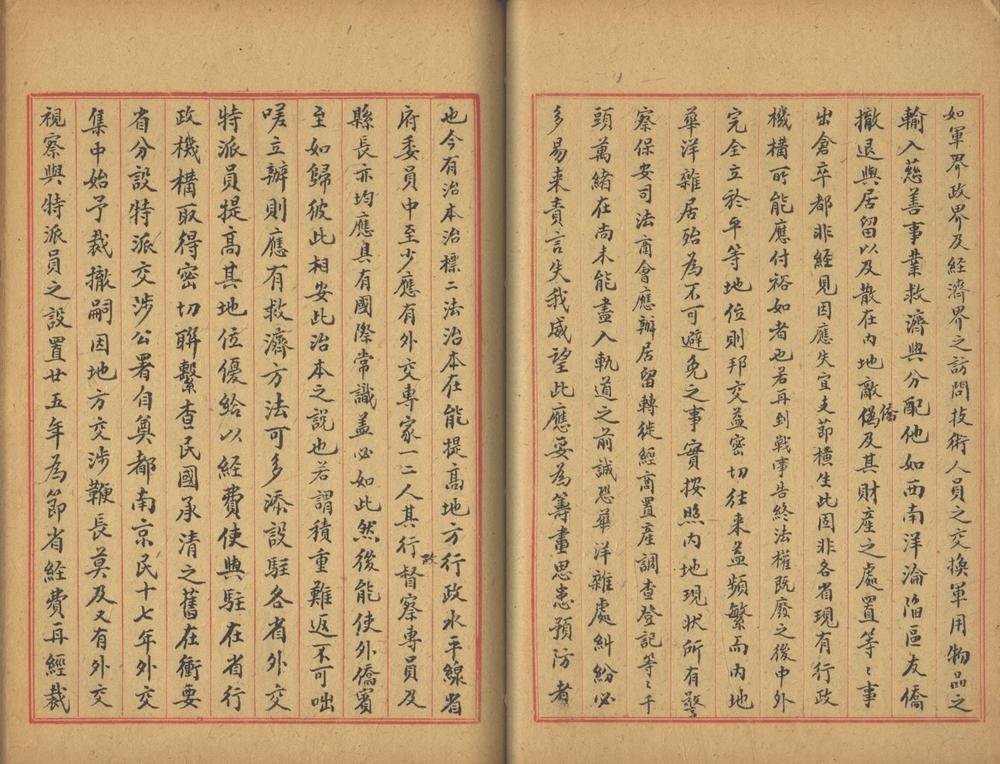 如軍界政界及経濟界之訪問技術人員之交換軍用物品之
輸入慈善事業救濟與分配他如西南洋淪陷區友僑
撤退與居留以及散在內地敵僑偽及其財産之處置等々事
出倉卒都非経見因應失宜支莭橫生此固非各省現有行政
機構所能應付裕如者也若再到戰事告終法權既廢之後中外
完全立於平等地位則邦交益密切往来益頻繁而內地
華洋雜居殆為不可避免之事實按照內地現狀所有警
察保安司法商會應辦居留轉徙經商置産調查登記等々千
頭萬緒在尚未能盡入軌道之前誠恐華洋雜處糾紛必
多易来責言失我威望此應妥為籌畫思患預防者
也今有治本治標二法治本在能提高地方行政水平線省
府委員中至少應有外交專家一二人其行政督察專員及
縣長亦均應具有國際常識盖必如此然後能使外僑賓
至如歸彼此相安此治本之說也若謂積重難返不可咄
嗟立辦則應有救濟方法可多添設駐各省外交
特派員提高其地位優給以経費使與駐在省行
政機構取得密切聨繫查民國承清之舊在衝要
省分設特派交涉公署自奠都南京民十七年外交
集中始予裁撤嗣因地方交涉鞭長莫及又有外交
視察與特派員之設置廿五年為節省経費再經裁